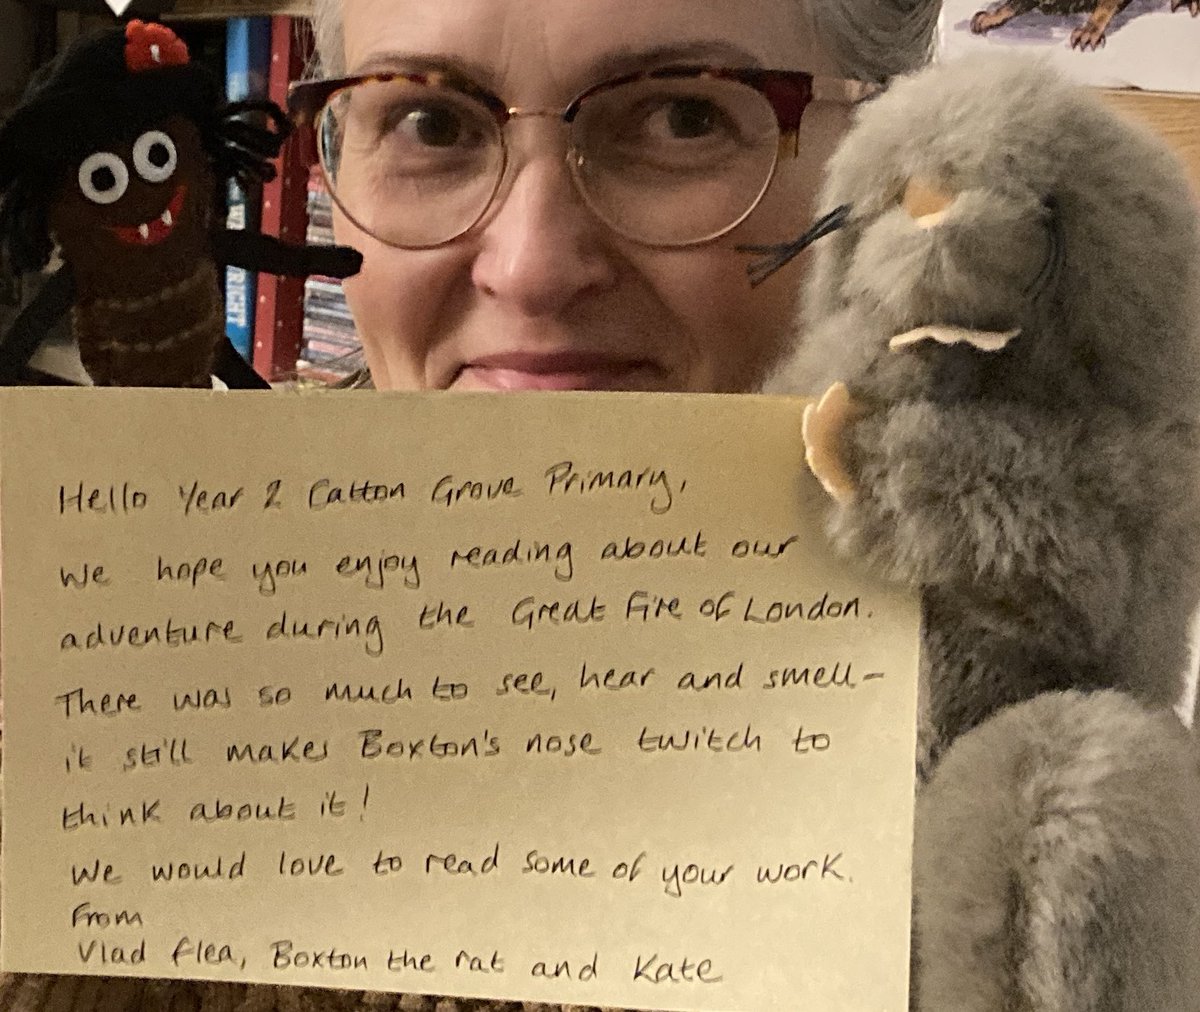 Hello Year 2 Catton Grove Primary,
We hope you enjoy reading about our
adventure during the Great Fire of London.
There was so much to see, hear and smell-
it still makes Boxton's nose twitch to
think about it!
We would love to read some of your work.
From
Vlad flea, Boxton the rat and Kate